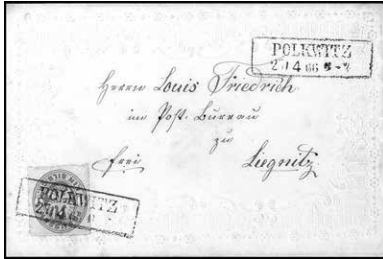 POLKWITZ
Herrn Louis Friedrich
im Post-Bureau
zu
frei Liegnitz
POLKWITZ